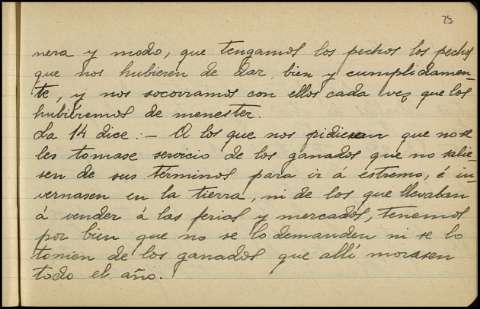 75
nera y modo, que tengamos los pechos los pechos
que nos hubieren de dar, bien y cumplidamen-
te, y nos socorramos con ellos cada vez que los
hubiéremos de menester.
La 14 dice: - A los que nos pidiesen que no se
les tomase servicio de los ganados que no salie
sen de sus términos para ir á estremo, é in-
vernasen en la tierra, ni de los que llevaban
á vender á las ferias y mercados, tenemos
por bien que no se lo demanden ni se lo
tomen de los ganados que allí morasen
todo el año.